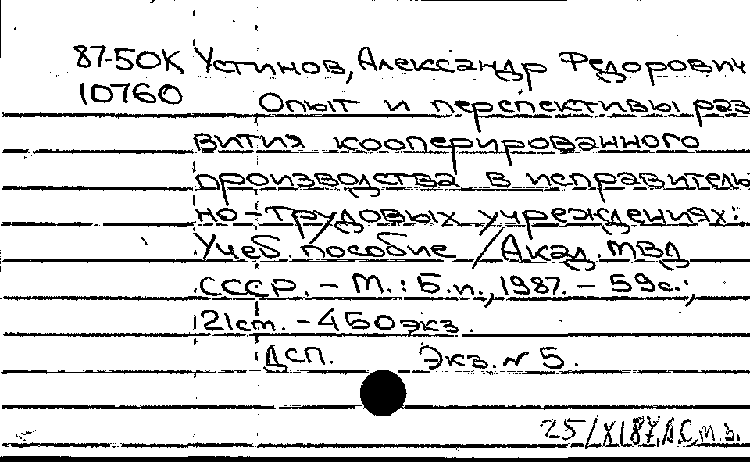 87-50К Устинов, Александр Федорович
10760 Опыт и перспективы раз
вития кооперированного
производства в исправитель
но-трудовых учреждениях:
Учеб. пособие / Акад. МВД
СССР. - М.: Б.и., 1987. - 59с.;
21см. - 450экз.
ДСП. Экз. № 5.
25/XI87,